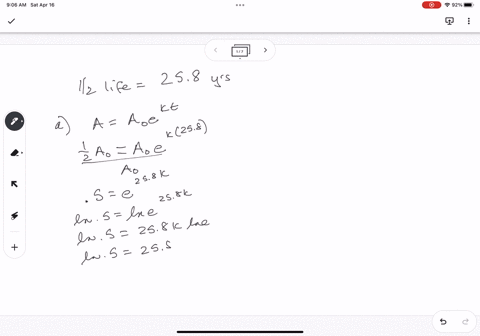 9:06 AM Sat Apr 16
92%
1/2 life = 25.8 yrs
a) A = A₀e^kt
1/2 A₀ = A₀e^k(25.8)
A₀
.5 = e^25.8k
ln .5 = ln e^25.8k
ln .5 = 25.8k lne
ln .5 = 25.8